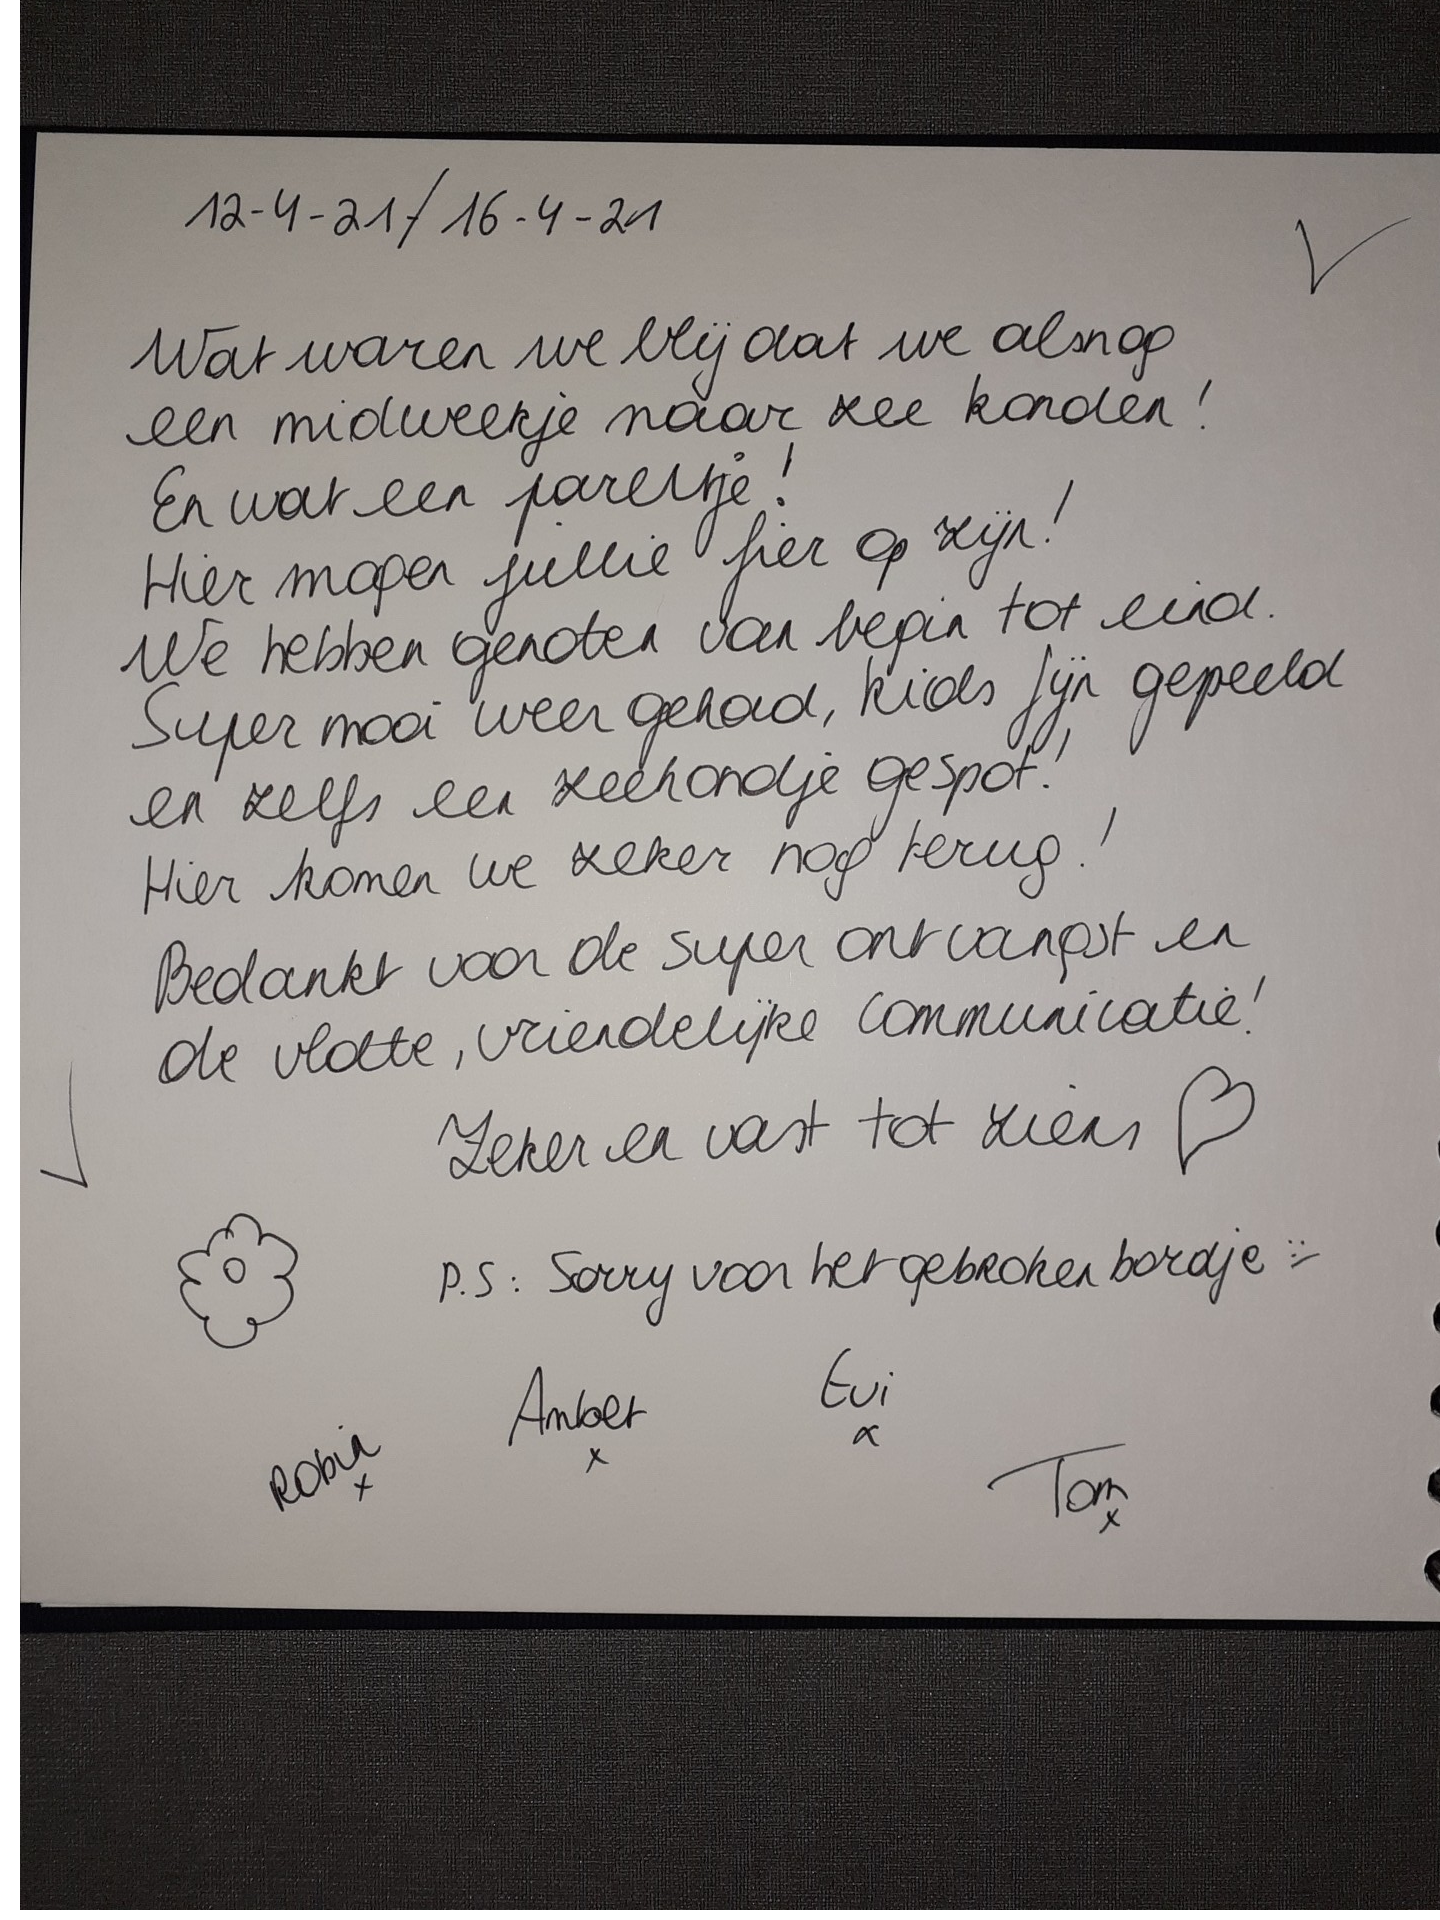 12-4-21/16-4-21
Wat waren we blij dat we alsnog
een midweekje naar zee konden!
En wat een pareltje!
Hier mogen jullie fier op zijn!
We hebben genoten van begin tot eind.
Super mooi weer gehad, kids fijn gepeeld
en zelfs een zeehondje gespot!
Hier komen we zeker nog terug!
Bedankt voor de super ontvangst en
de vlotte, vriendelijke communicatie!
Zeker en vast tot ziens
P.S: Sorry voor het gebroken bordje :-/
Amber
x
Evi
x
Robin
x
Tom
x